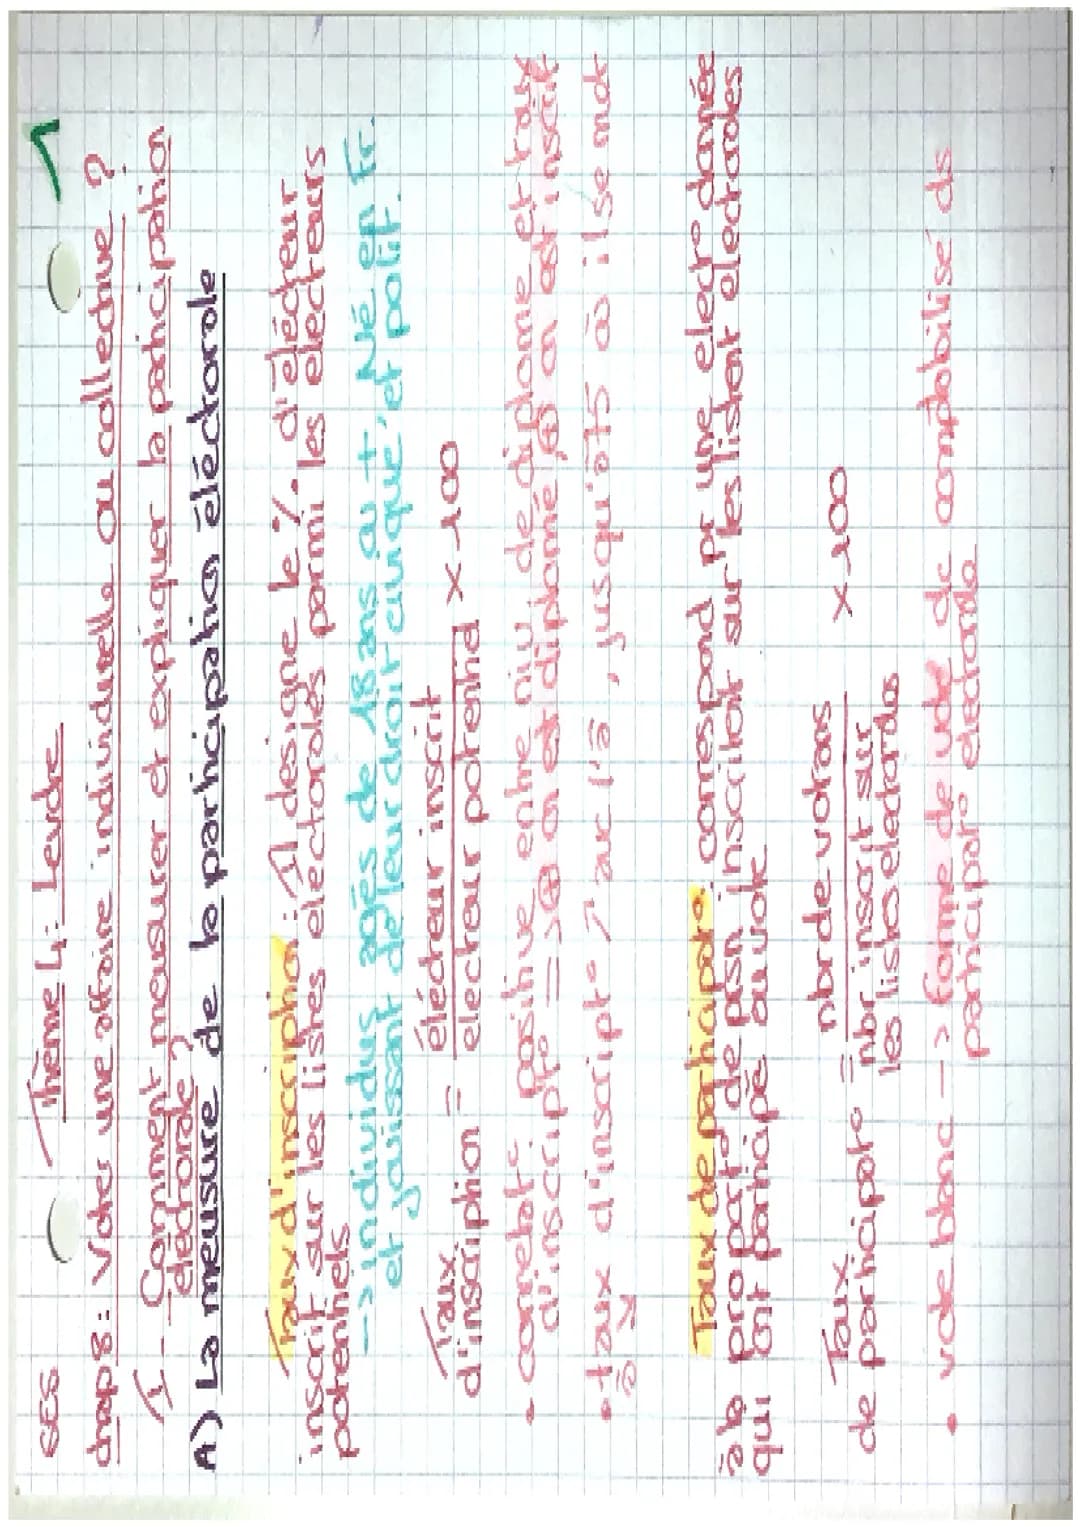 SES Thème 4: Levote
chap8: Voter une affaire individuelle ou collective?
I - Comment mesurer et expliquer la participation
électorale?
A) La meusure de la participation éléctorale
Taux d'inscription: Il designe le % d'élécteur
inscrit sur les listes électorales parmi les electeurs
potentiels
-> individus agés de 18 ans ou + Né en Fr.
et jouissant de leur droit civique et polit.
Taux d'inscription = élécteur inscrit / electeur potentiel x 100
• correlat° positive entre niv de diplome et taux
d'inscript° => ⊕ on est diplomé ⊕ on est inscrit
• taux d'inscript° ↗ sur l'a, jusqu'à 75 où il se met
à ↘
Taux de participato: correspond pr une elect° donnée
à la proport° de psn inscritent sur les listent electorales
qui ont participé au vote
Taux de participat° = nbr de votans / nbr inscrit sur les listes electorales x 100
• vote blanc -> forme de vote de comptabilisé ds
participat° electorale